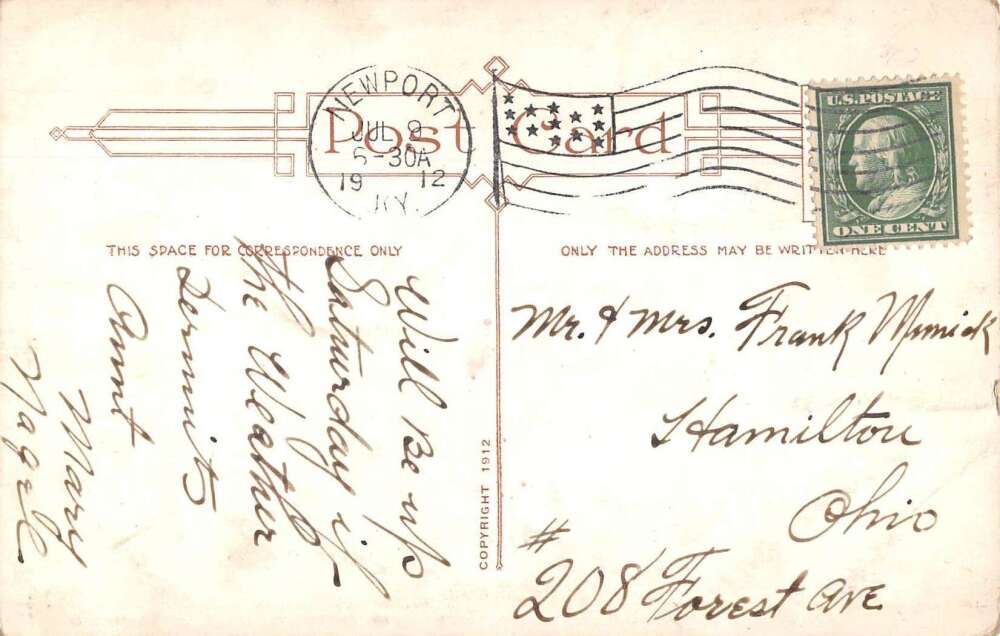 NEWPORT
JUL 9
5-30A
19 12
KY.
Post Card
U.S. POSTAGE
ONE CENT
THIS SPACE FOR CORRESPONDENCE ONLY
ONLY THE ADDRESS MAY BE WRITTEN HERE
Will Be up
Saturday if
the Weather
Permits
Aunt
Mary
Nagel
COPYRIGHT 1912
Mr. & Mrs. Frank
Hamilton
Ohio
#
208 Forest Ave